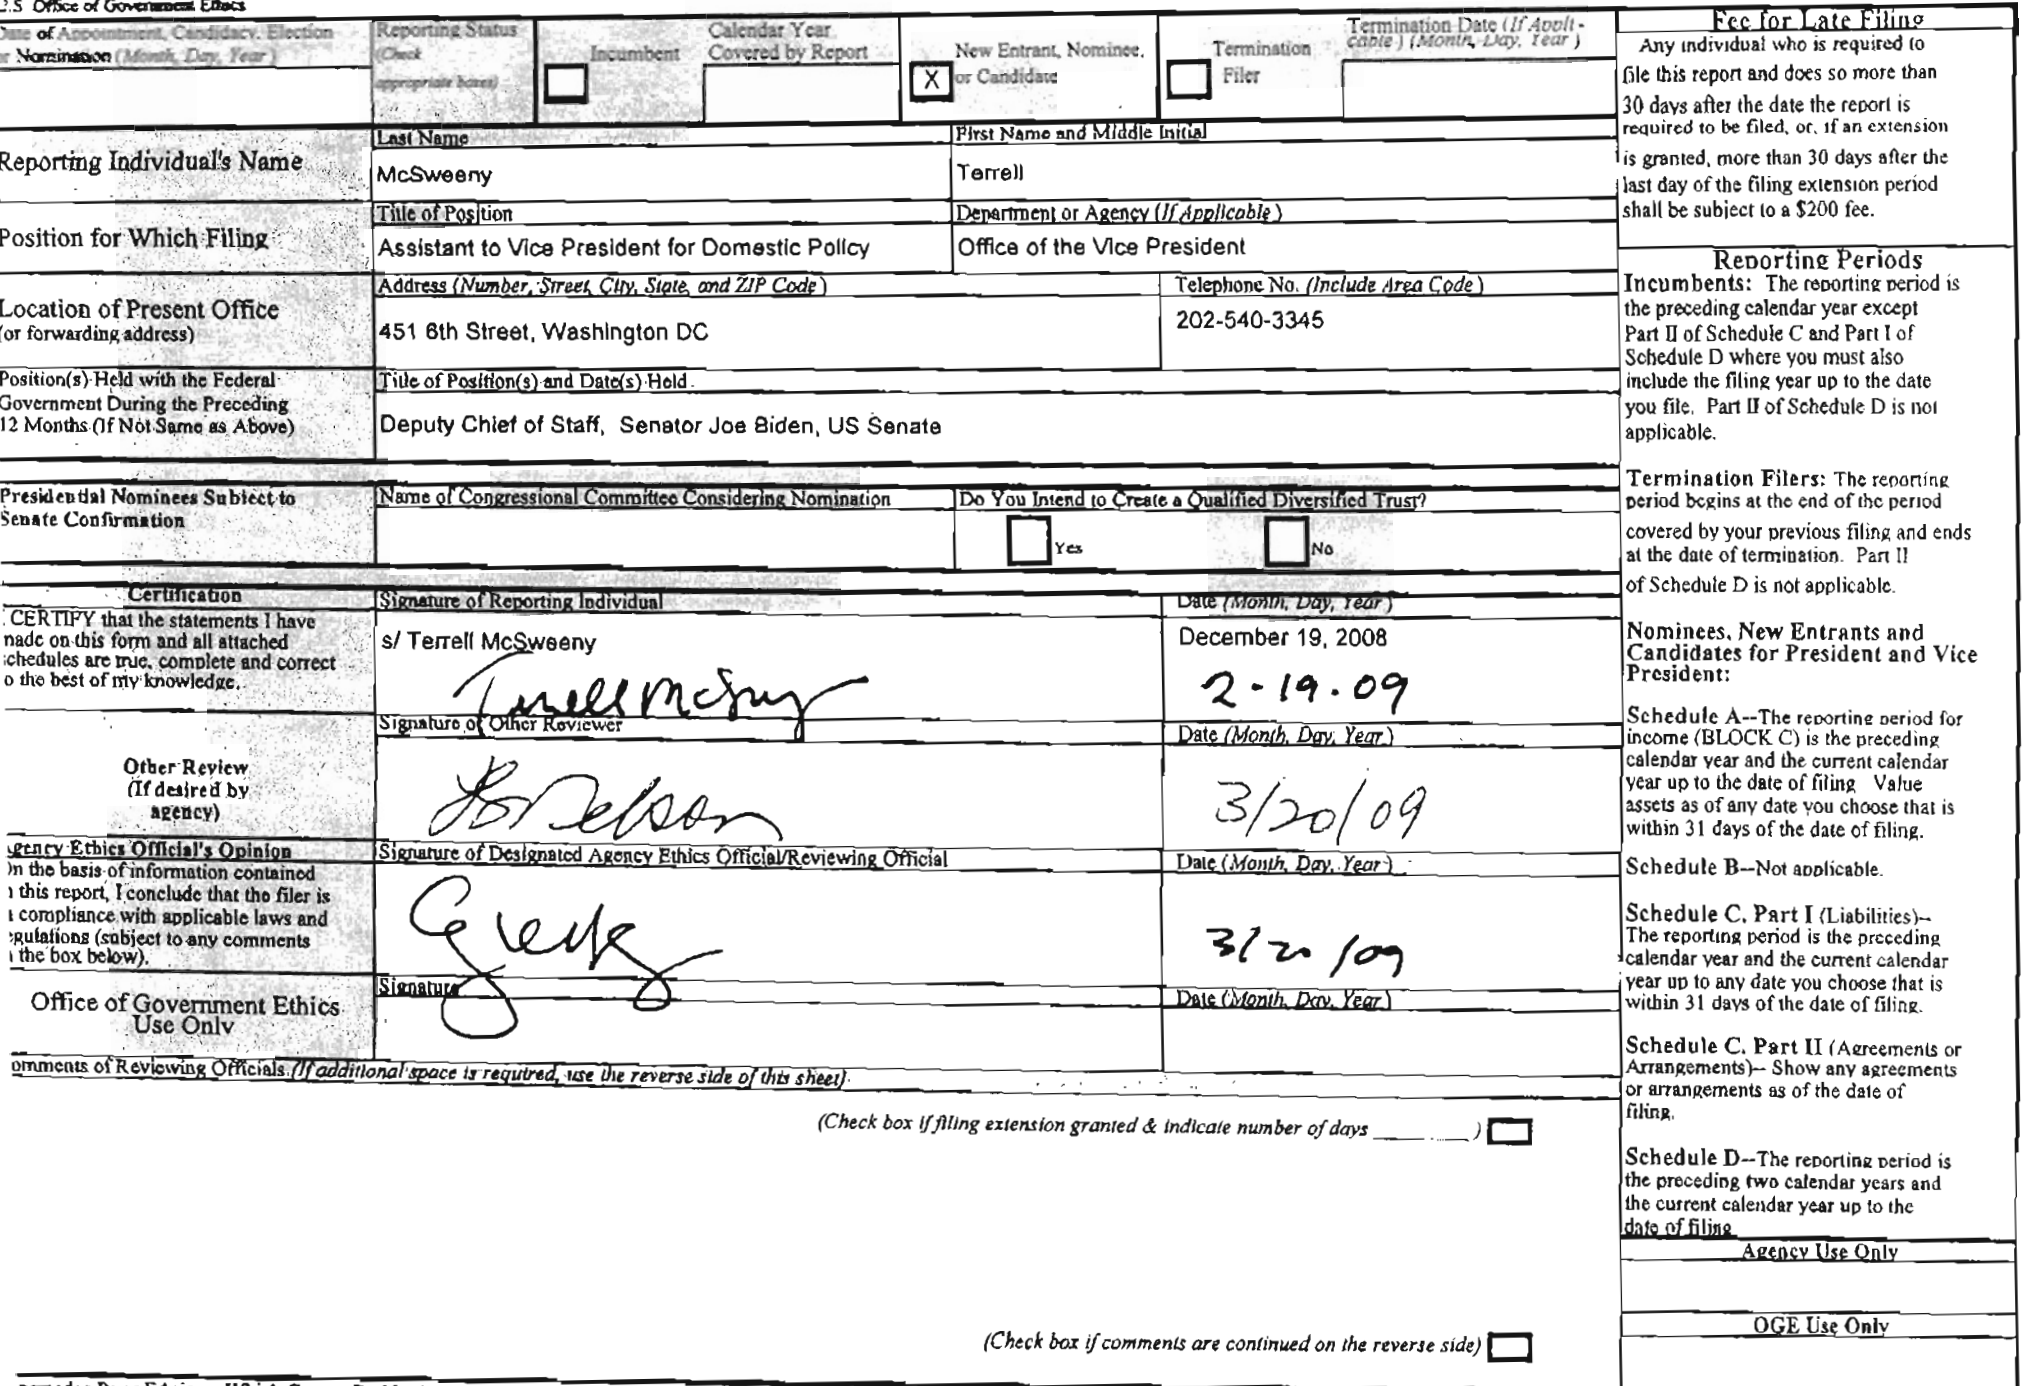 U.S Office of Government Ethics
Date of Appointment, Candidacy, Election
or Nomination (Month, Day, Year)
Reporting Status
(Check
appropriate boxes)
Incumbent
Calendar Year
Covered by Report
New Entrant, Nominee,
or Candidate
X
Termination
Filer
Termination Date (If Appli-
cable) (Month, Day, Year)
Fee for Late Filing
Any individual who is required to
file this report and does so more than
30 days after the date the report is
required to be filed, or, if an extension
is granted, more than 30 days after the
last day of the filing extension period
shall be subject to a $200 fee.
Reporting Individual's Name
Last Name
McSweeny
First Name and Middle Initial
Terrell
Position for Which Filing
Title of Position
Assistant to Vice President for Domestic Policy
Department or Agency (If Applicable)
Office of the Vice President
Location of Present Office
(or forwarding address)
Address (Number, Street, City, State, and ZIP Code)
451 6th Street, Washington DC
Telephone No. (Include Area Code)
202-540-3345
Position(s) Held with the Federal
Government During the Preceding
12 Months (If Not Same as Above)
Title of Position(s) and Date(s) Held
Deputy Chief of Staff, Senator Joe Biden, US Senate
Presidential Nominees Subject to
Senate Confirmation
Name of Congressional Committee Considering Nomination
Do You Intend to Create a Qualified Diversified Trust?
Yes
No
Certification
CERTIFY that the statements I have
made on this form and all attached
schedules are true, complete and correct
to the best of my knowledge.
Signature of Reporting Individual
s/ Terrell McSweeny
Terrell McSweeny
Date (Month, Day, Year)
December 19, 2008
2-19-09
Other Review
(If desired by
agency)
Signature of Other Reviewer
Date (Month, Day, Year)
3/20/09
Agency Ethics Official's Opinion
On the basis of information contained
in this report, I conclude that the filer is
in compliance with applicable laws and
regulations (subject to any comments
in the box below).
Signature of Designated Agency Ethics Official/Reviewing Official
Date (Month, Day, Year)
3/20/09
Office of Government Ethics
Use Only
Signature
Date (Month, Day, Year)
omments of Reviewing Officials (If additional space is required, use the reverse side of this sheet)
(Check box if filing extension granted & indicate number of days ____ )
(Check box if comments are continued on the reverse side)
Reporting Periods
Incumbents: The reporting period is
the preceding calendar year except
Part II of Schedule C and Part I of
Schedule D where you must also
include the filing year up to the date
you file. Part II of Schedule D is not
applicable.
Termination Filers: The reporting
period begins at the end of the period
covered by your previous filing and ends
at the date of termination. Part II
of Schedule D is not applicable.
Nominees, New Entrants and
Candidates for President and Vice
President:
Schedule A--The reporting period for
income (BLOCK C) is the preceding
calendar year and the current calendar
year up to the date of filing Value
assets as of any date you choose that is
within 31 days of the date of filing.
Schedule B--Not applicable.
Schedule C, Part I (Liabilities)--
The reporting period is the preceding
calendar year and the current calendar
year up to any date you choose that is
within 31 days of the date of filing.
Schedule C, Part II (Agreements or
Arrangements)-- Show any agreements
or arrangements as of the date of
filing.
Schedule D--The reporting period is
the preceding two calendar years and
the current calendar year up to the
date of filing
Agency Use Only
OGE Use Only